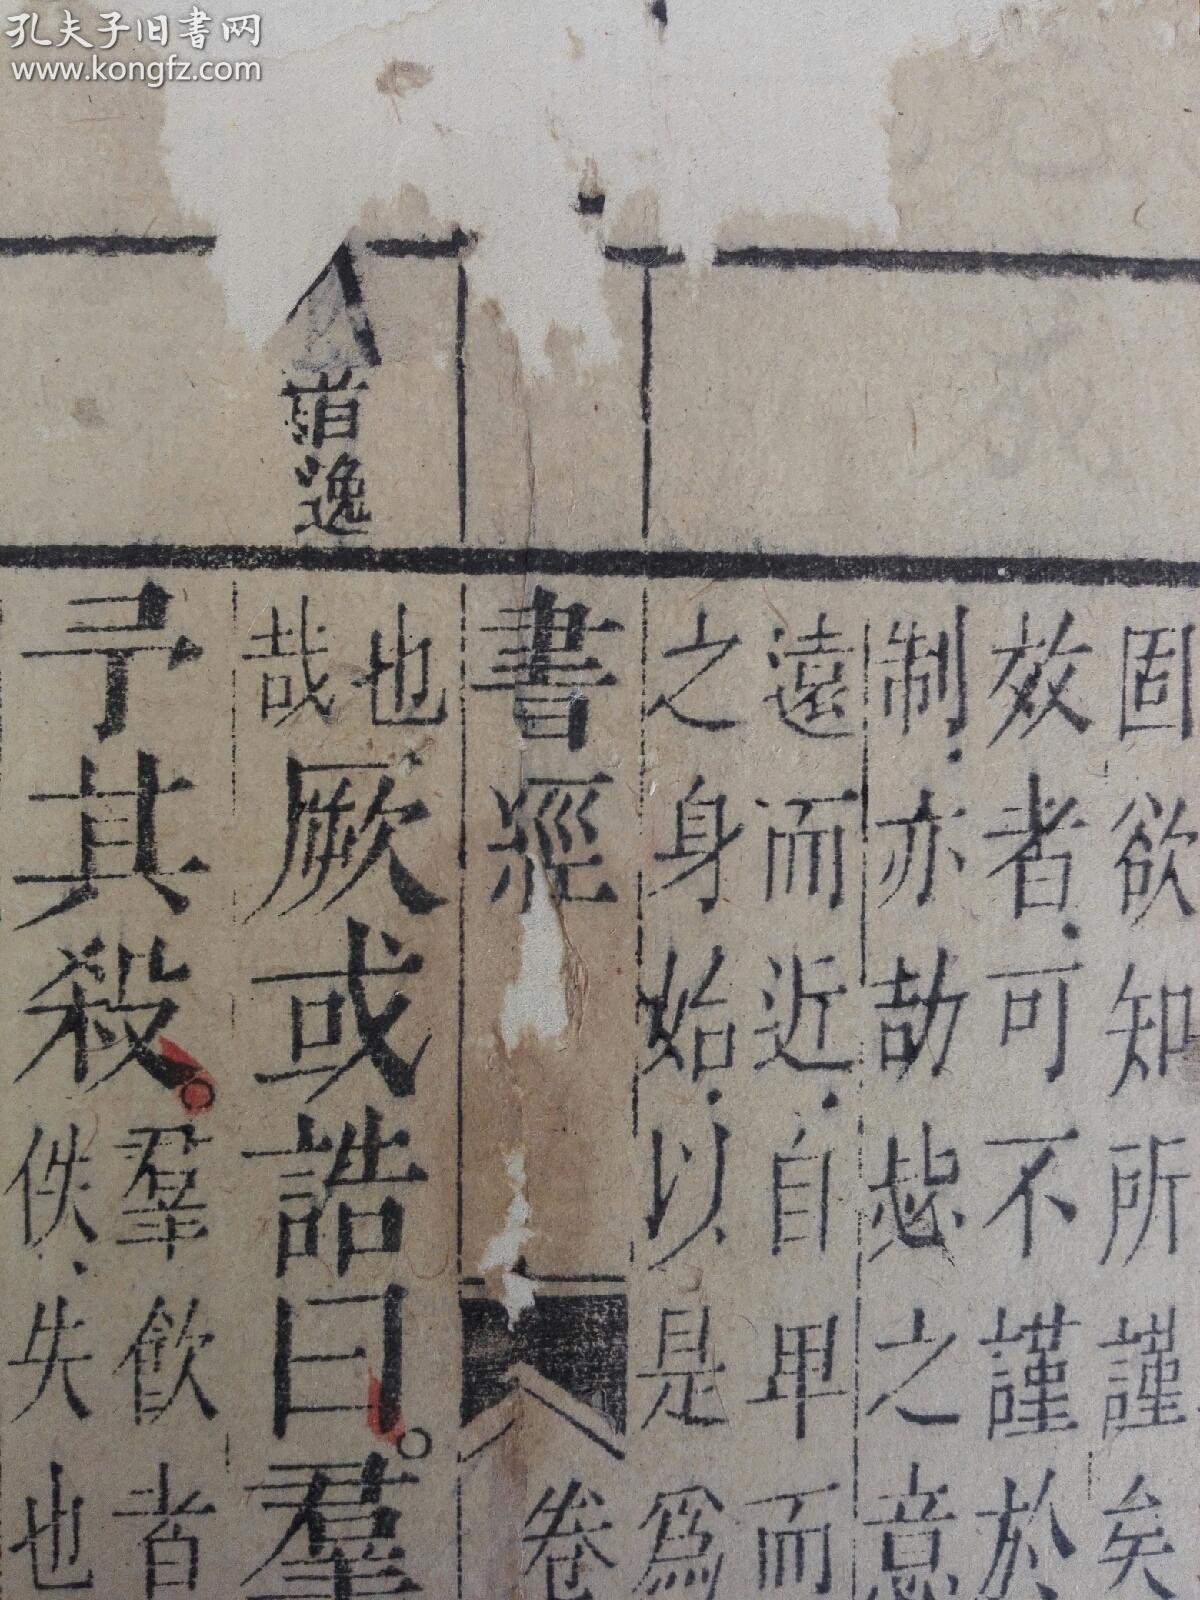 孔夫子旧書网
www.kongfz.com
固欲知所謹矣
效者、可不謹於
制、亦劼毖之意
遠而近、自卑而
之身始、以是爲
書經 卷
逸
也
哉
厥或誥曰。羣
予其殺。
羣飲者
佚、失也